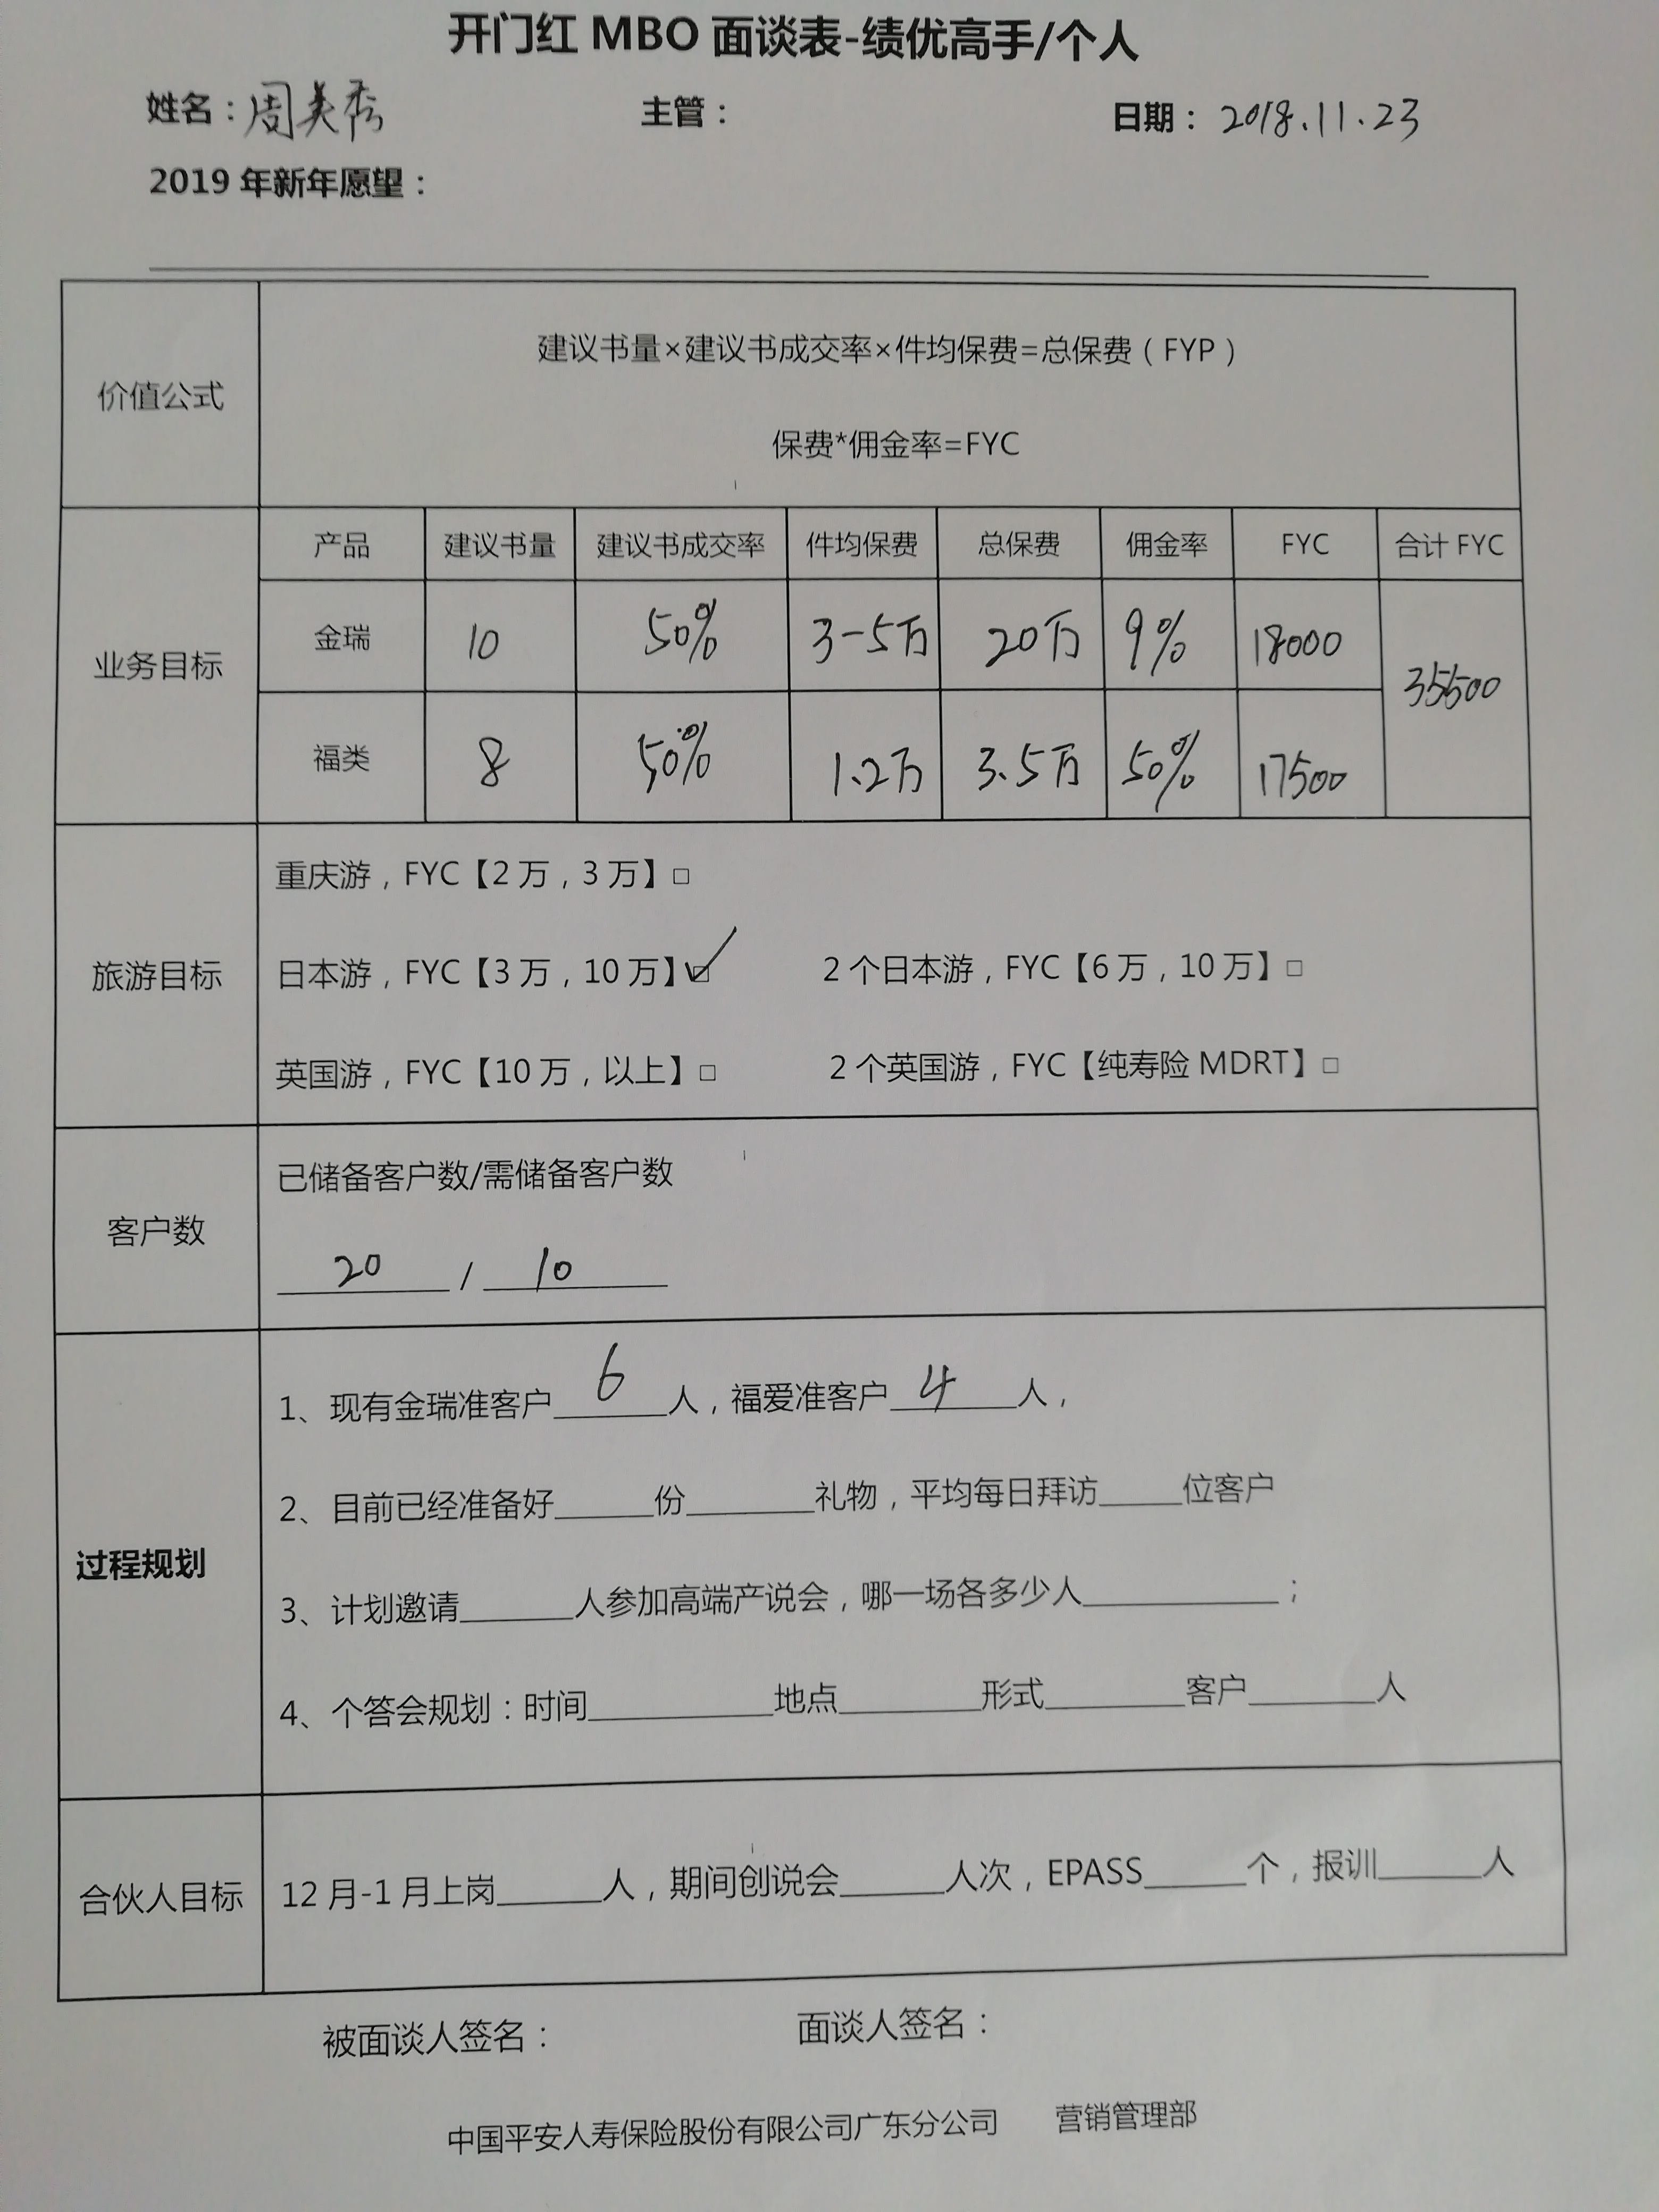 开门红 MBO 面谈表-绩优高手/个人
姓名：周美秀 主管： 日期：2018.11.23
2019 年新年愿望：
价值公式
建议书量×建议书成交率×件均保费=总保费（FYP）
保费*佣金率=FYC
业务目标
产品 建议书量 建议书成交率 件均保费 总保费 佣金率 FYC 合计 FYC
金瑞 10 50% 3-5万 20万 9% 18000 35500
福类 8 50% 1.2万 3.5万 50% 17500
旅游目标
重庆游，FYC【2 万，3 万】□
日本游，FYC【3 万，10 万】☑ 2 个日本游，FYC【6 万，10 万】□
英国游，FYC【10 万，以上】□ 2 个英国游，FYC【纯寿险 MDRT】□
客户数
已储备客户数/需储备客户数
20 / 10
过程规划
1、现有金瑞准客户 6 人，福爱准客户 4 人，
2、目前已经准备好______份________礼物，平均每日拜访_____位客户
3、计划邀请_______人参加高端产说会，哪一场各多少人____________；
4、个答会规划：时间____________地点_________形式_________客户________人
合伙人目标
12 月-1 月上岗_______人，期间创说会_______人次，EPASS_______个，报训_______人
被面谈人签名： 面谈人签名：
中国平安人寿保险股份有限公司广东分公司 营销管理部